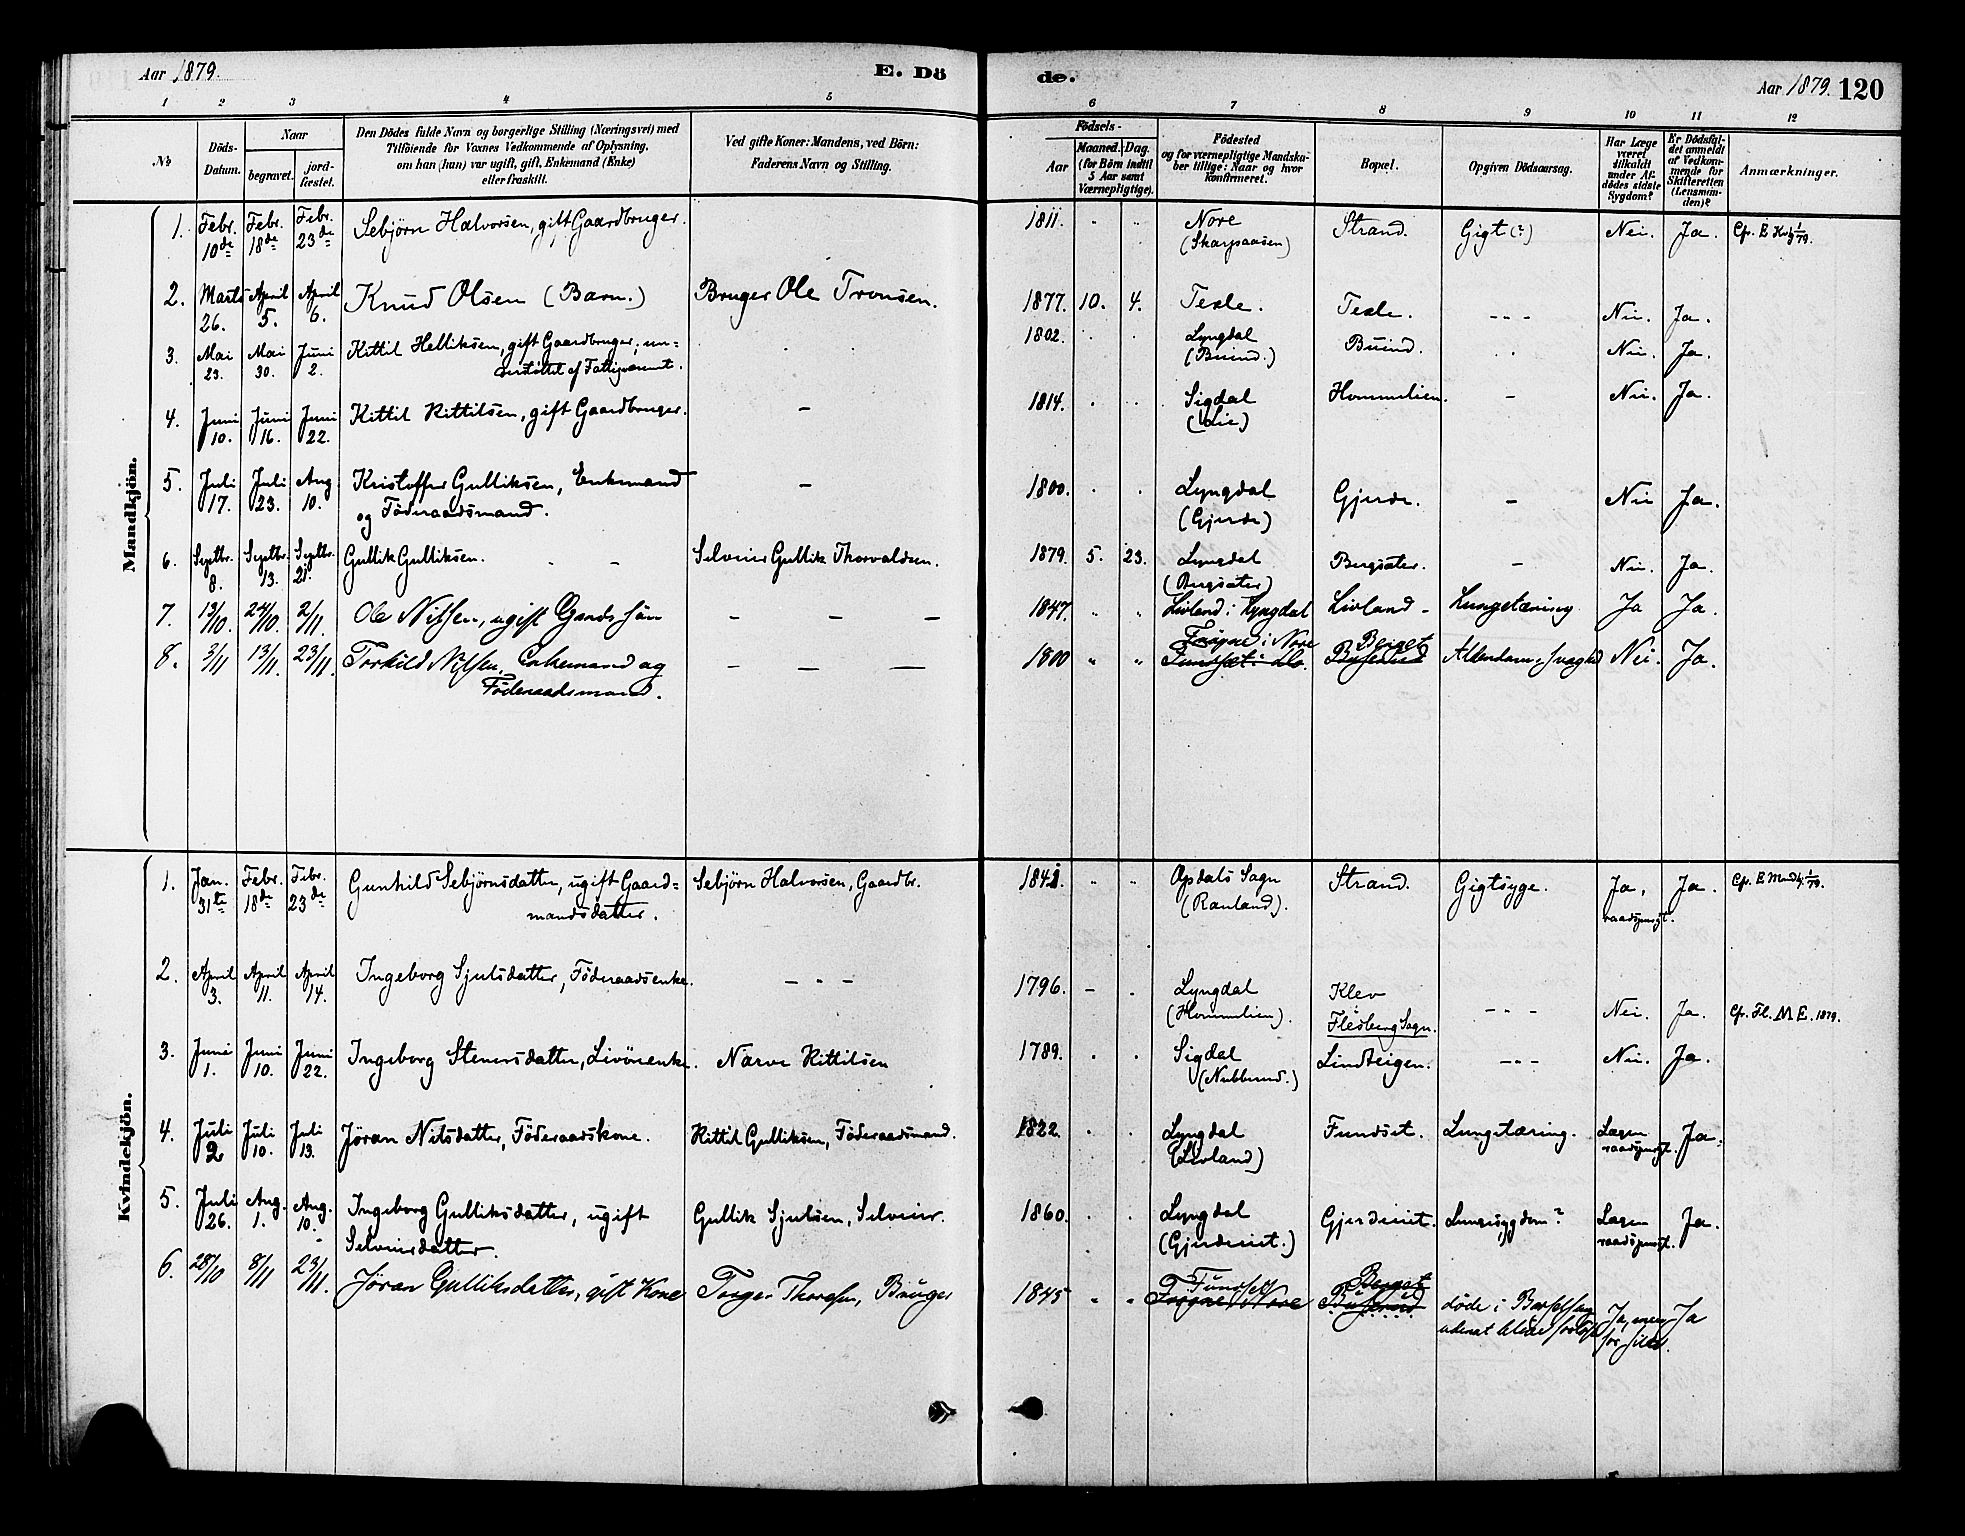 Aar 1879.
E. Dö
de.
Aar 1879. 120
1 2 3 4 5 6 7 8 9 10 11 12
No
Döds-
Datum.
Naar
begravet.
jord-
fæstet.
Den Dödes fulde Navn og borgerlige Stilling (Næringsvei) med
Tilföiende for Voxnes Vedkommende af Oplysning,
om han (hun) var ugift, gift, Enkemand (Enke)
eller fraskilt.
Ved gifte Koner: Mandens, ved Börn:
Faderens Navn og Stilling.
Födsels-
Aar
Maaned. Dag.
(for Börn indtil
5 Aar samt
Værnepligtige).
Födested
og for værnepligtige Mandska-
ber tillige: Naar og hvor
konfirmeret.
Bopæl.
Opgiven Dödsaarsag.
Har Læge
været
tilkaldt
under Af-
dödes sidste
Sygdom?
Er Dödsfal-
det anmeldt
af Vedkom-
mende for
Skifteretten
(Lensman-
den)?
Anmærkninger.
Mandkjön.
1. Febr. 10de Febr. 18de Febr. 23de Sebjørn Halvorsen, gift Gaardbruger. 1811. Nore (Skarpaasen) Strand. Gigt (?) Nei. Ja. Cfr. E Kv.
2. Marts 26. April 5. April 6. Knud Olsen (Barn.) Bruger Ole Tronsen. 1877. 10. 4. Texle. Texle. - - - Nei. Ja.
3. Mai 23. Mai 30. Juni 2. Kittil Helliksen, gift Gaardbruger, un-
derstøttet af Fattigvæsenet. 1802. Lyngdal (Buind.) Buind. Nei. Ja.
4. Juni 10. Juni 16. Juni 22. Kittil Kittilsen, gift Gaardbruger. - 1814. Sigdal (Lie) Hommelien. - Nei. Ja.
5. Juli 17. Juli 23. Aug. 10. Kristoffer Gulliksen, Enkemand
og Föderaadsmand. - 1800. Lyngdal (Gjerde) Gjerde. - Nei Ja.
6. Septbr. 8. Septbr. 13. Septbr. 21. Gullik Gulliksen. - Selveier Gullik Thorvaldsen. 1879. 5. 23. Lyngdal (Bergsæter) Bergsæter. - Nei. Ja.
7. 13/10. 24/10. 2/11. Ole Nilssen, ugift Gaards søn - - - 1847. Livland i Lyngdal Livland - Lungetæring Ja Ja.
8. 3/11 13/11. 23/11. Torkild Nilssen, Enkemand og
Föderaadsmand. - - - 1800 Frøgne i Nore Fundset i do. Berget Buserud Alderdomssvaghed Nei. Ja.
Kvindekjön.
1. Jan. 31te Febr. 18de Febr. 23de Gunhild Sebjörnsdatter, ugift Gaard-
mandsdatter. Sebjörn Halvorsen, Gaardbr. 1841. Opdals Sogn (Rauland). Strand. Gigtsyge. Ja, raadspurgt. Ja.
2. April 3. April 11. April 14. Ingeborg Sjulsdatter, Föderaadsenke. - - - 1796. - Lyngdal (Hommelien). Klev
Flesberg Sogn. - - - Nei. Ja. Cfr. Fl. M E. 1879.
3. Juni 1. Juni 10. Juni 22. Ingeborg Stenersdatter, Livörenke. Narve Kittilsen 1789. Sigdal (Nubberud.) Lindteigen. - - - Nei. Ja.
4. Juli 2 Juli 10. Juli 13. Jöran Nilsdatter, Föderaadskone. Kittil Gulliksen, Föderaadsmand. 1822. Lyngdal (Livland) Fundset. Lungetæring. Lægen raadspurgt. Ja.
5. Juli 26. Aug. 1. Aug. 10. Ingeborg Gulliksdatter, ugift
Selveiersdatter. Gullik Sjulsen, Selveier. 1860. Lyngdal (Gjerdeiet.) Gjerdeiet. Lungesygdom? Lægen raadspurgt. Ja.
6. 28/10 8/11 23/11. Jöran Gulliksdatter, gift Kone Torger Thorsen, Bruger 1845 Fundset Frøgne i Nore Berget Buserud døde i Barselseng
uden at blive forløst Ja, men
for sild. Ja